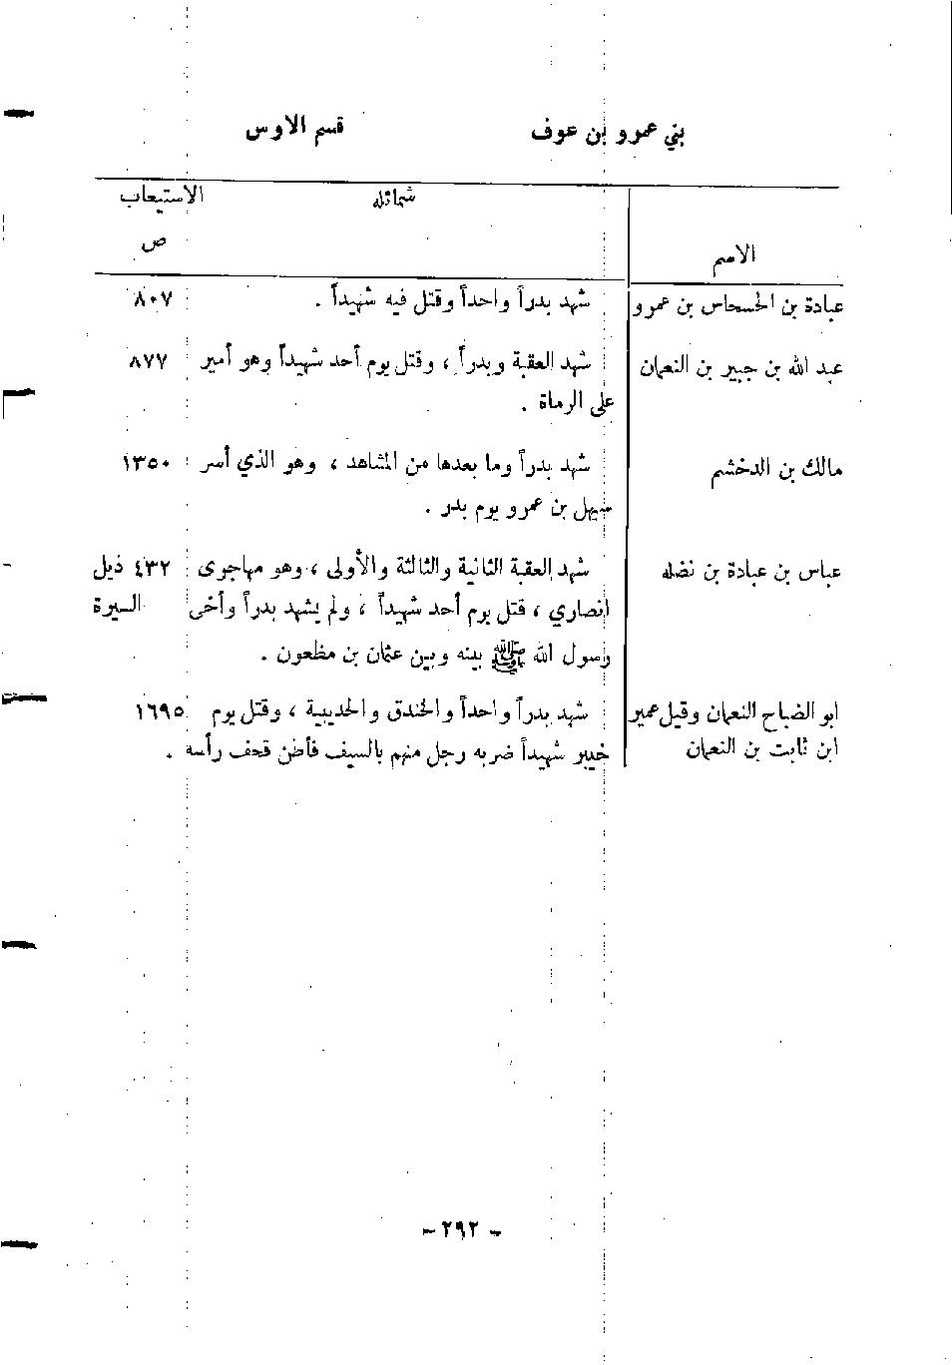 بني عمرو بن عوف قسم الاوس
شمائله الاستيعاب
الاسم ص
عبادة بن الحسحاس بن عمرو شهد بدراً واحداً وقتل فيه شهيداً . ٨٠٧
عبد الله بن جبير بن النعمان شهد العقبة وبدراً ، وقتل يوم أحد شهيداً وهو أمير ٨٧٧
على الرماة .
مالك بن الدخشم شهد بدراً وما بعدها من المشاهد ، وهو الذي أسر ١٣٥٠
سهيل بن عمرو يوم بدر .
عباس بن عبادة بن نضله شهد العقبة الثانية والثالثة والأولى ، وهو مهاجوى ٤٣٢ ذيل
انصاري ، قتل يوم أحد شهيداً ، ولم يشهد بدراً وأخى السيرة
رسول الله ﷺ بينه وبين عثمان بن مظعون .
ابو الضياح النعمان وقيل عمير شهد بدراً واحداً والخندق والحديبية ، وقتل يوم ١٦٩٥
ابن ثابت بن النعمان خيبر شهيداً ضربه رجل منهم بالسيف فأطن قحف رأسه .
- ٢٩٢ -